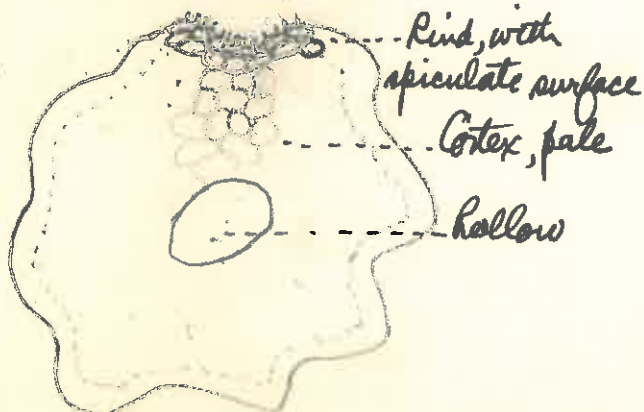 Rind, with
spiculate surface
Cortex, pale
hollow